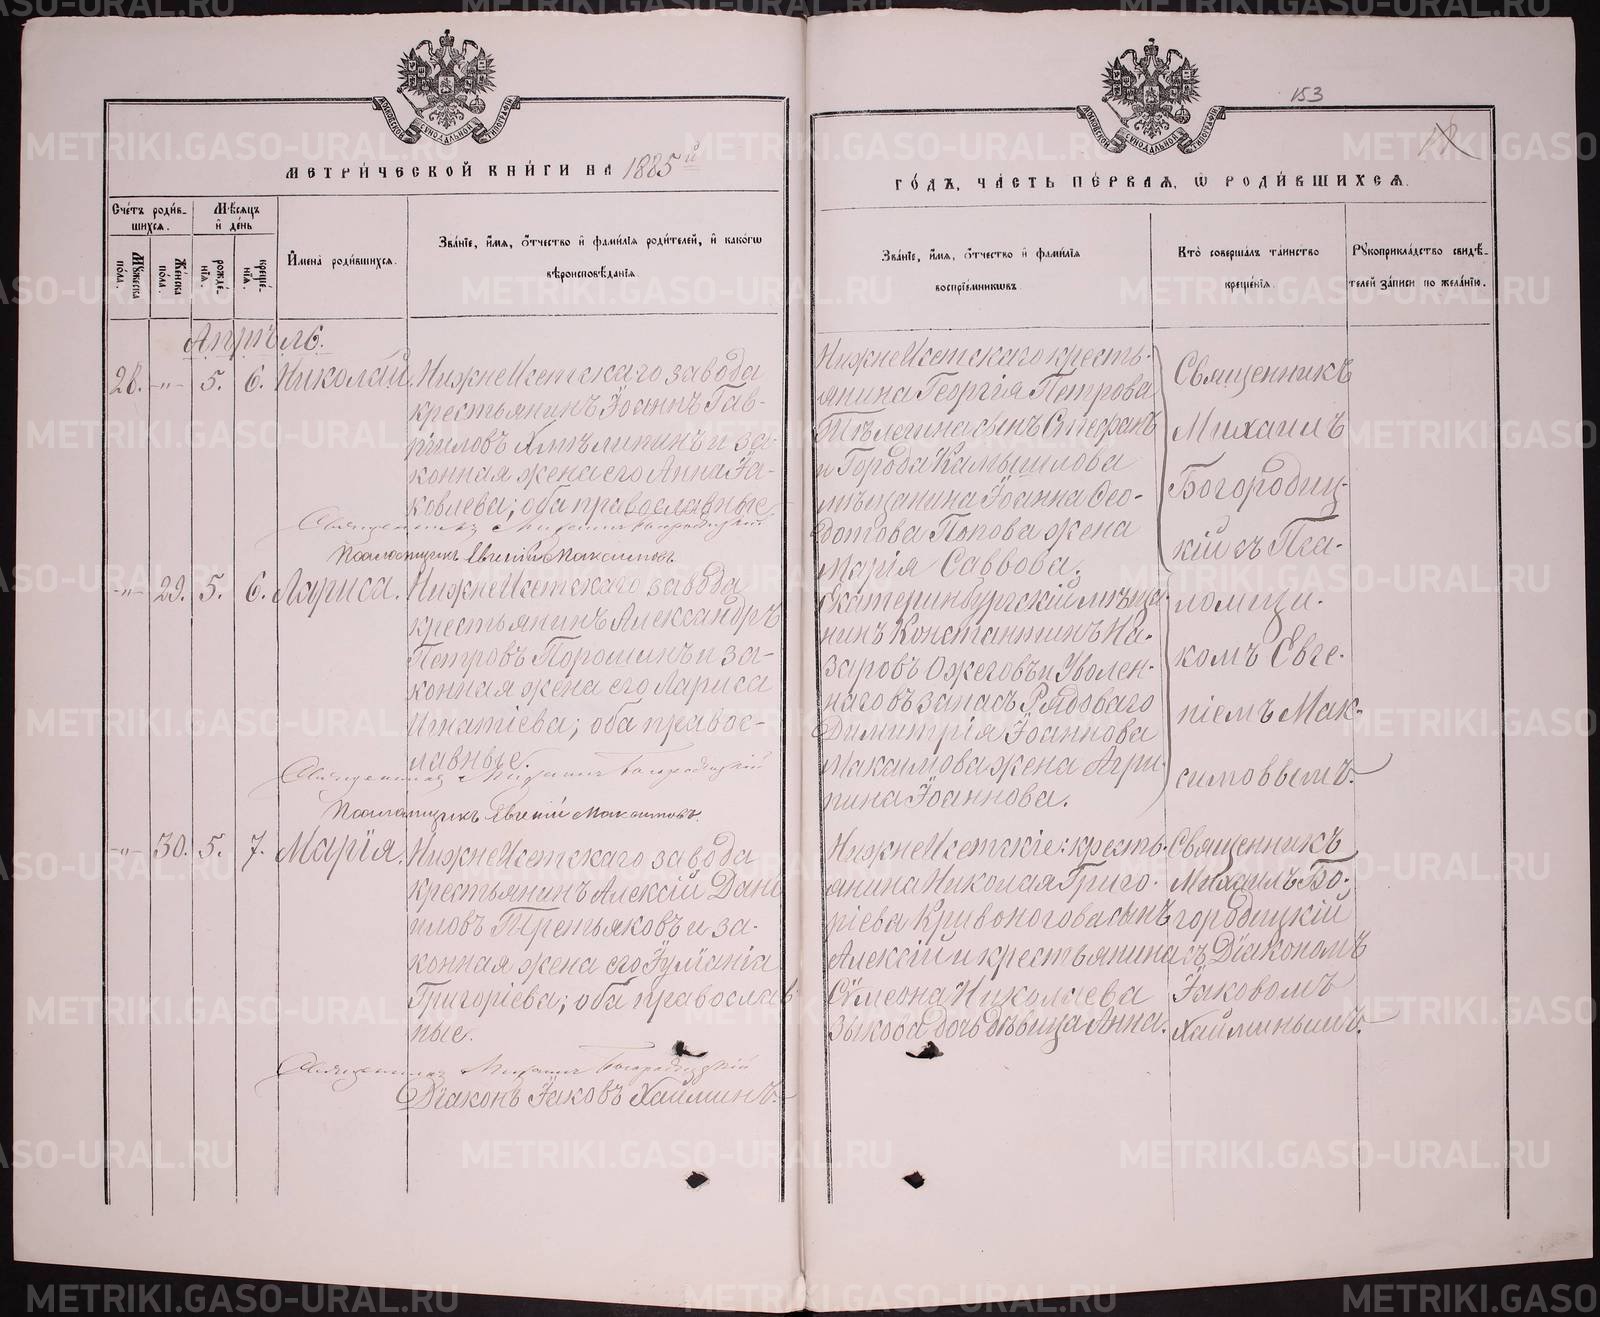 153
МЕТРИ́ЧЕСКОЙ КНИ́ГИ НА 1885й
ГО́ДЪ, ЧА́СТЬ ПЕ́РВАЯ, Ѡ РОДИ́ВШИХСЯ.
Сче́тъ роди́в-
шихся.
Мѣ́сяцъ
и҆ де́нь
Му́жеска
по́ла.
Же́нска
по́ла.
рожде́-
нїя.
креще́-
нїя.
И҆мена̀ роди́вшихся.
Зва́нїе, и҆́мя, ѻ҆́тчество и҆ фами́лїя роди́телей, и҆ како́гѡ
вѣроисповѣ́данїя.
Зва́нїе, и҆́мя, ѻ҆́тчество и҆ фами́лїя
воспрїе́мникѡвъ.
Кто̀ соверша́лъ та́инство
креще́нїя.
Рꙋкоприкла́дство свидѣ́-
телей за́писи по жела́нїю.
Апрѣль.
28. -„- 5. 6. Николай.
НижнеИсетскаго завода
крестьянинъ Іоаннъ Гав-
риловъ Хмѣлининъ и за-
конная жена его Анна Іа-
ковлева; оба православные.
Священникъ Михаилъ Богородицкій
Псаломщикъ Евгеній Максимовъ.
НижнеИсетскаго кресть-
янина Георгія Петрова
Тѣлегина сынъ Стефанъ
и Города Камышлова
мѣщанина Іоанна Ѳео-
дотова Попова жена
Марія Саввова.
Священникъ
Михаилъ
Богородиц-
кій съ Пса-
ломщи-
комъ Евге-
ніемъ Мак-
симовымъ.
-„- 29. 5. 6. Лариса.
НижнеИсетскаго завода
крестьянинъ Александръ
Петровъ Порошинъ и за-
конная жена его Лариса
Игнатіева; оба правос-
лавные.
Священникъ Михаилъ Богородицкій
Псаломщикъ Евгеній Максимовъ.
Екатеринбургскій мѣща-
нинъ Константинъ На-
заровъ Ожеговъ и Уволен-
наго въ запасъ Рядоваго
Димитрія Іоаннова
Максимова жена Агри-
пина Іоаннова.
-„- 30. 5. 7. Марія.
НижнеИсетскаго завода
крестьянинъ Алексій Дані
иловъ Третьяковъ и за-
конная жена его Іуліанія
Григоріева; оба православ-
ные.
Священникъ Михаилъ Богородицкій
Діаконъ Іаковъ Хайминъ.
НижнеИсетскіе: кресть-
янина Николая Григо-
ріева Кривоногова сынъ
Алексій и крестьянина
Сѵмеона Николаева
Зыкова дочь дѣвица Анна.
Священникъ
Михаилъ Бо-
городицкій
съ Діакономъ
Іаковомъ
Хайминымъ.
METRIKI.GASO-URAL.RU